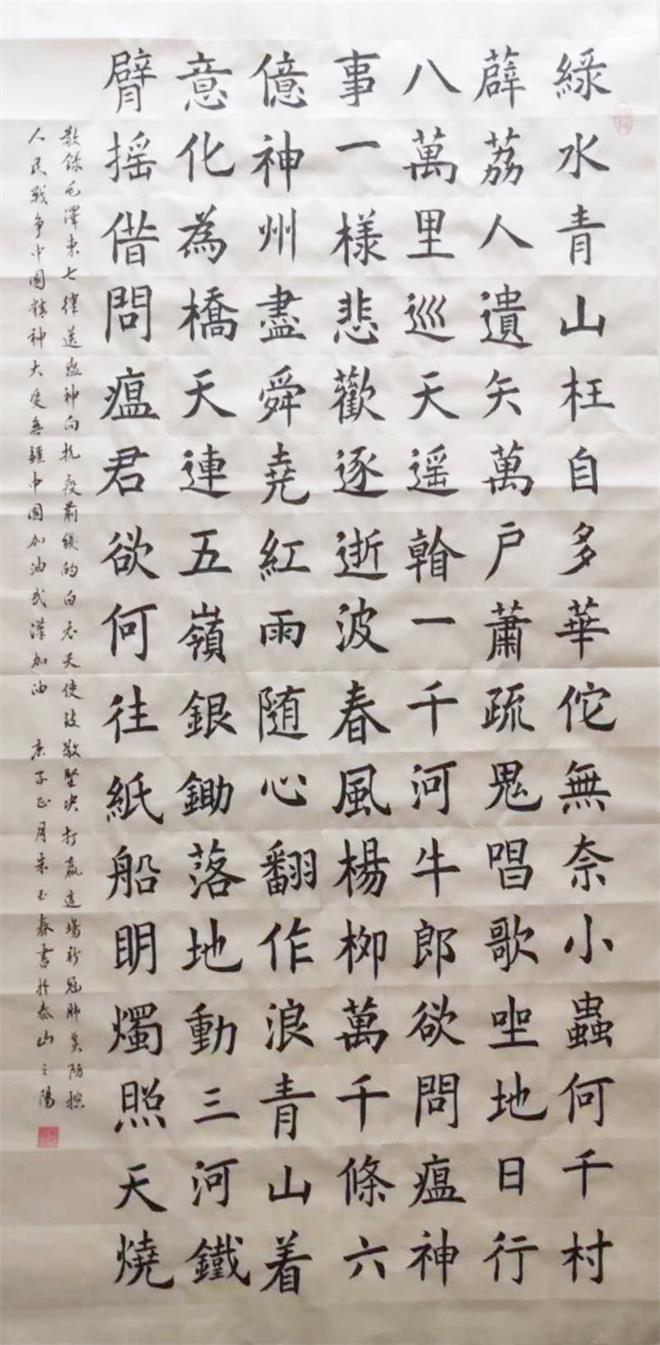 綠水青山枉自多華佗無奈小蟲何千村
薜荔人遺矢萬戶蕭疏鬼唱歌坐地日行
八萬里巡天遥看一千河牛郎欲問瘟神
事一樣悲歡逐逝波春風楊柳萬千條六
億神州盡舜堯紅雨随心翻作浪青山着
意化為橋天連五嶺銀鋤落地動三河鐵
臂摇借問瘟君欲何往紙船明燭照天燒
敬錄毛澤東七律送瘟神向抗疫前线的白衣天使致敬堅决打贏這場新冠肺炎防控
人民戰争中國精神大爱無疆中國加油武漢加油 庚子正月朱玉春書於泰山之陽